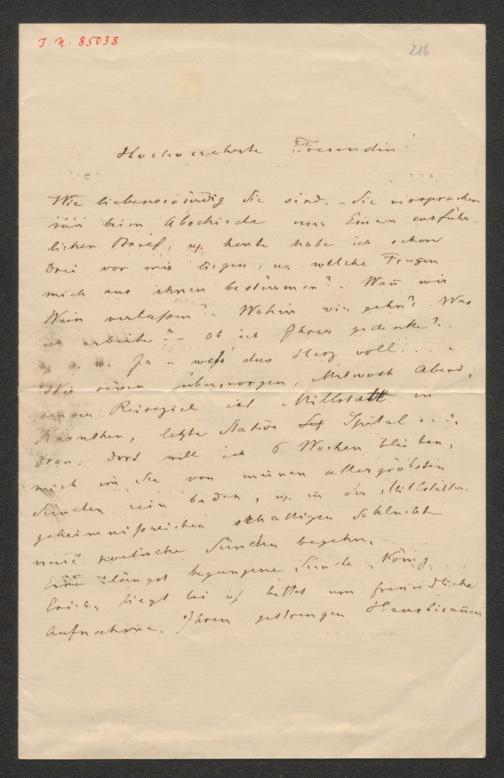 I. N. 85038
216
Hochverehrte Freundin!
Wie liebenswürdig Sie sind. – Sie versprachen
mir beim Abschiede nur Einen ausführ-
lichen Brief, u. heute habe ich schon
drei vor mir liegen, u. welche Fragen
mich aus ihnen bestürmen? – Wañ wir
Wien verlaßen? – Wohin wir gehn? Was
ich arbeite? – Ob ich Ihrer gedenke? –
Ja – weß' das Herz voll . . . .
Wir reisen übermorgen, Mittwoch Abend,
unser Reiseziel ist Millstatt in
Kärnthen, letzte Station Spital . . .
dran; dort will ich 6 Wochen bleiben,
mich im See von meinen allergröbsten
Sünden rein baden, u. in der Millstätter
geheimnißreichen schattigen Schlucht
neue poetische Sünden begehn. –
Eine längst begangene Sünde, König
Erich, liegt bei u. bittet um freundliche
Aufnahme. Ihren gestrengen Hausbesañen